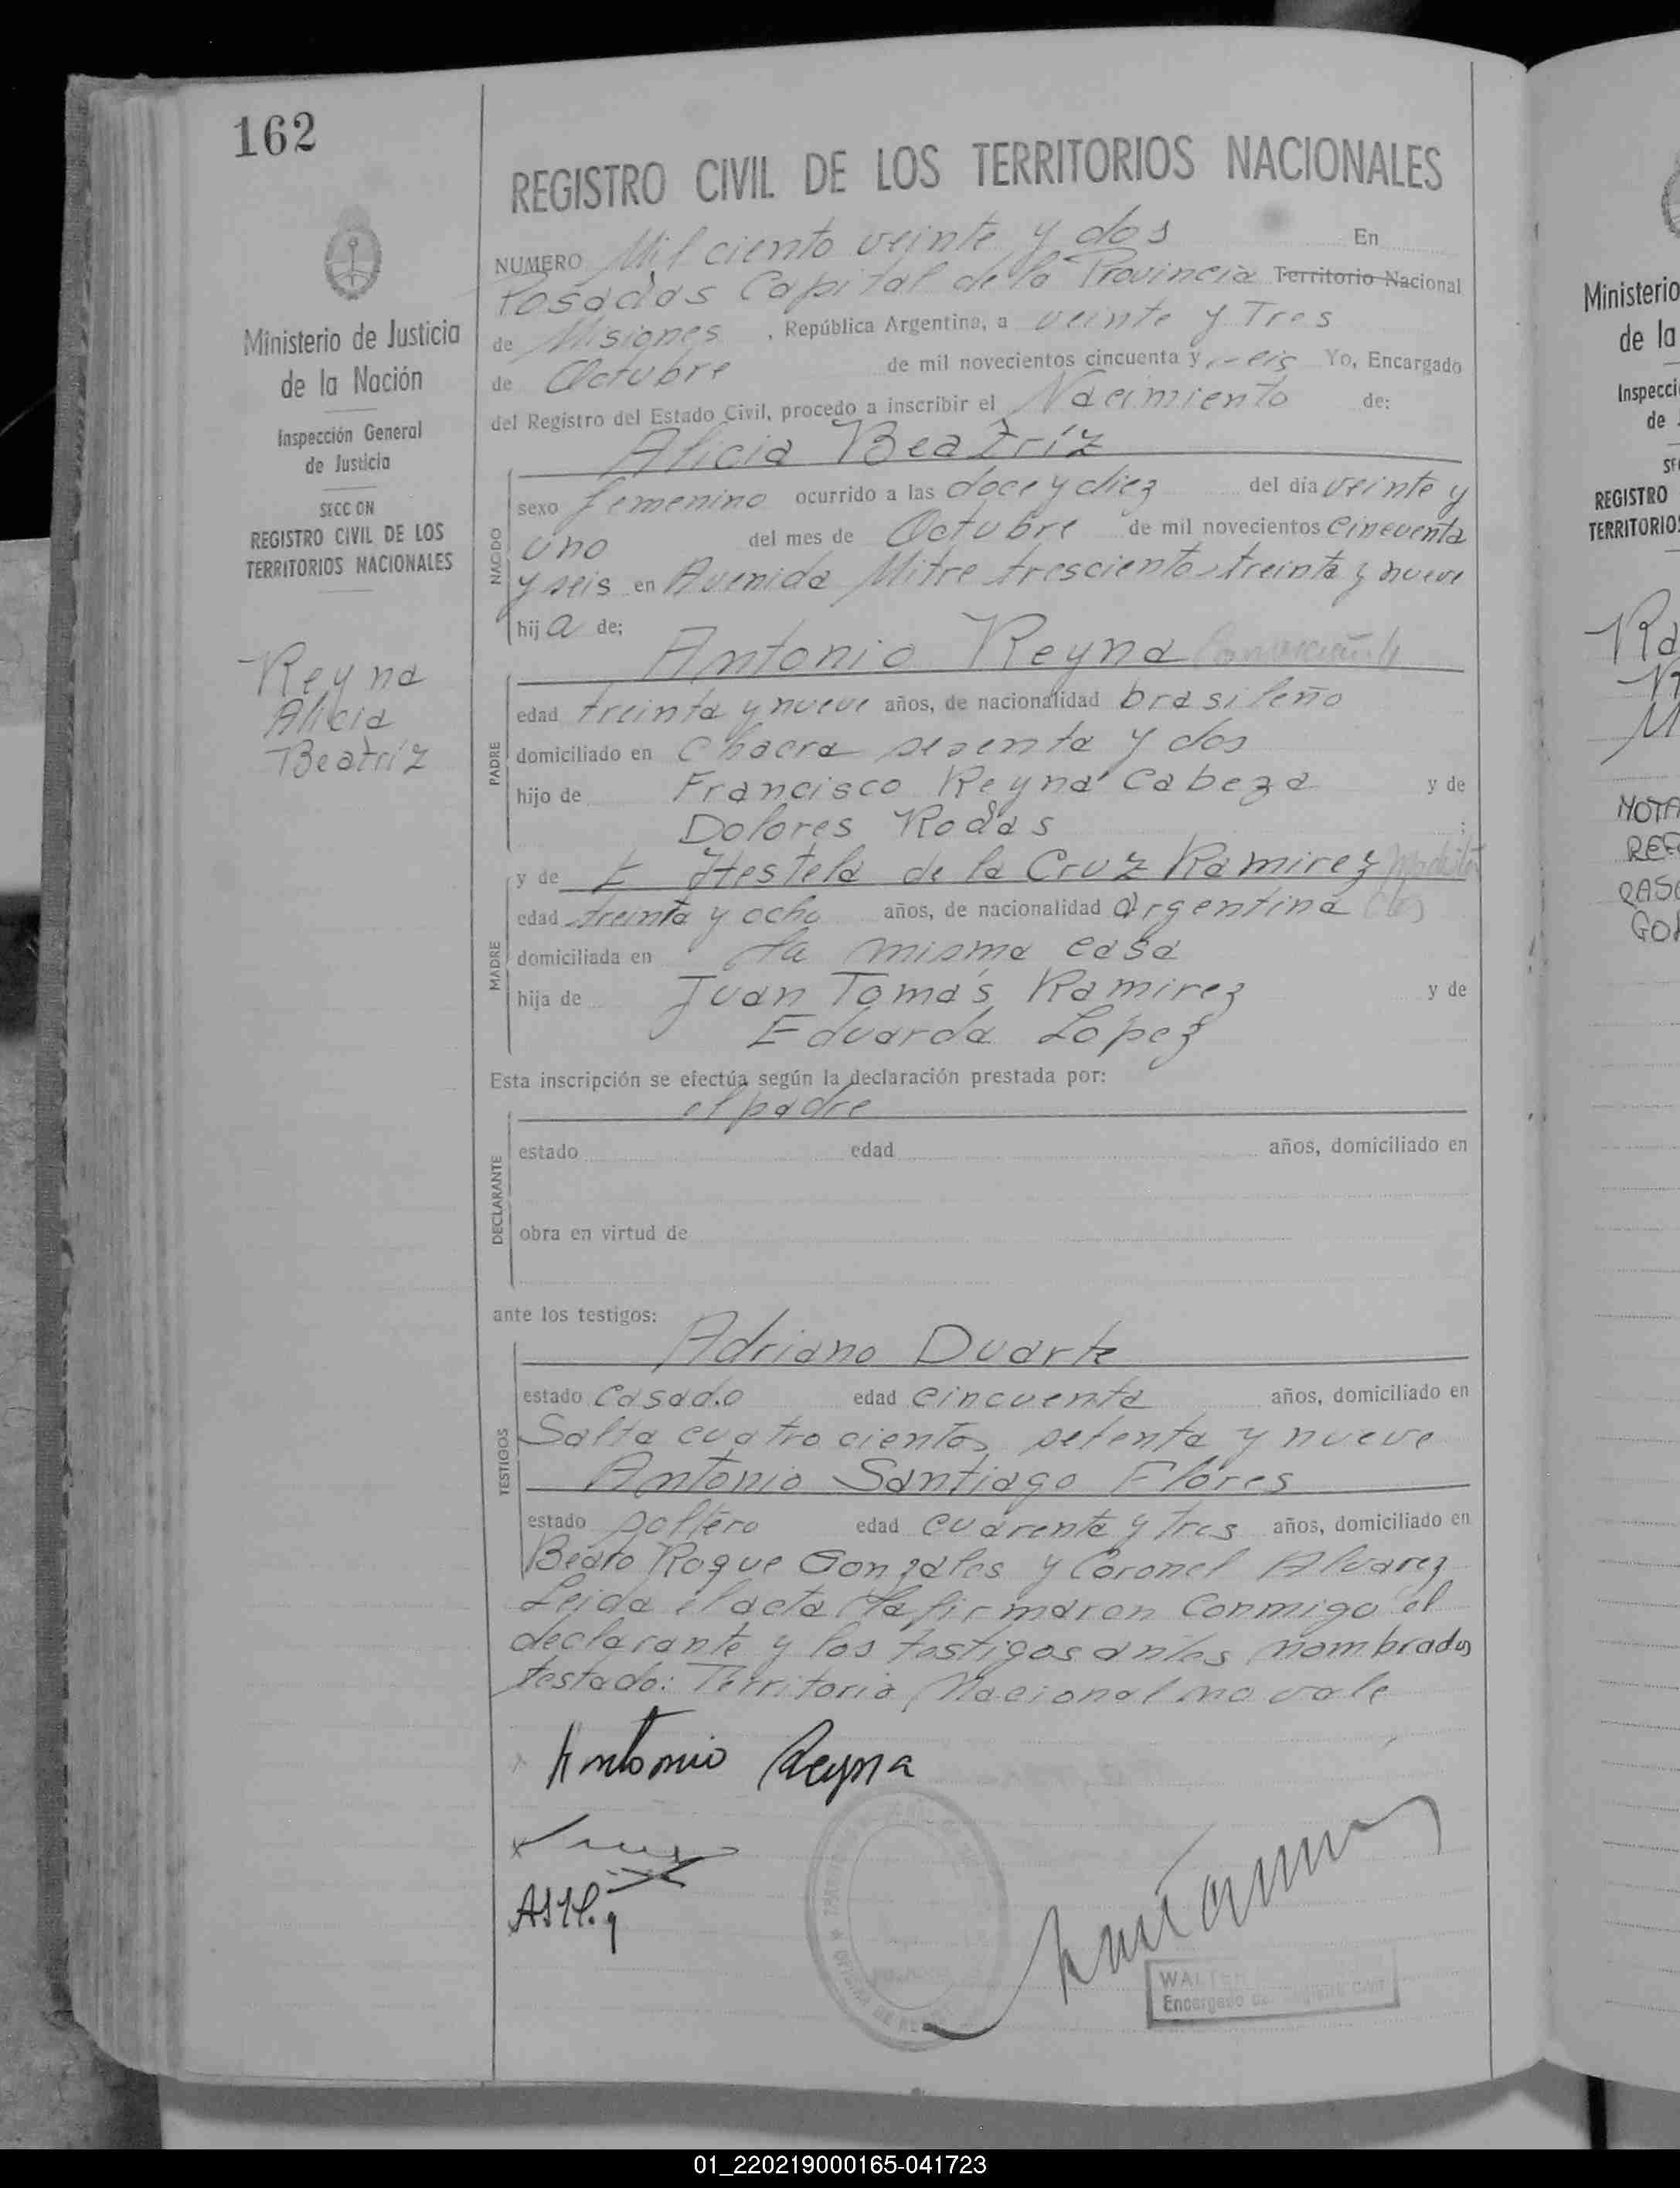 162
REGISTRO CIVIL DE LOS TERRITORIOS NACIONALES
NUMERO Mil ciento veinte y dos En
Posadas Capital de la Provincia Territorio Nacional
de Misiones, República Argentina, a veinte y Tres
de Octubre de mil novecientos cincuenta y seis Yo, Encargado
del Registro del Estado Civil, procedo a inscribir el Nacimiento de:
Alicia Beatríz
NACIDO
sexo femenino ocurrido a las doce y diez del día veinte y
uno del mes de Octubre de mil novecientos cincuenta
y seis en Avenida Mitre trescientos treinta y nueve
hija de;
Antonio Reyna
PADRE
edad treinta y nueve años, de nacionalidad brasileño
domiciliado en Chacra sesenta y dos
hijo de Francisco Reyna Cabeza y de
Dolores Rodas ;
y de Hestela de la Cruz Ramirez
MADRE
edad treinta y ocho años, de nacionalidad argentina
domiciliada en la misma casa
hija de Juan Tomás Ramirez y de
Eduarda Lopez
Esta inscripción se efectúa según la declaración prestada por:
el padre
DECLARANTE
estado edad años, domiciliado en
obra en virtud de
ante los testigos:
Adriano Duarte
TESTIGOS
estado casado edad cincuenta años, domiciliado en
Salta cuatrocientos setenta y nueve
Antonio Santiago Flores
estado soltero edad cuarenta y tres años, domiciliado en
Beato Roque Gonzales y Coronel Alvarez
Leida el acta la firmaron conmigo el
declarante y los testigos antes nombrados
testado: Territorio Nacional no vale
Antonio Reyna
WALTER
Encargado del Registro Civil
Ministerio de Justicia
de la Nación
Inspección General
de Justicia
SECCON
REGISTRO CIVIL DE LOS
TERRITORIOS NACIONALES
Reyna
Alicia
Beatríz
Ministerio
de la
Inspecci
de
REGISTRO
TERRITORIOS
NOTA
01_220219000165-041723